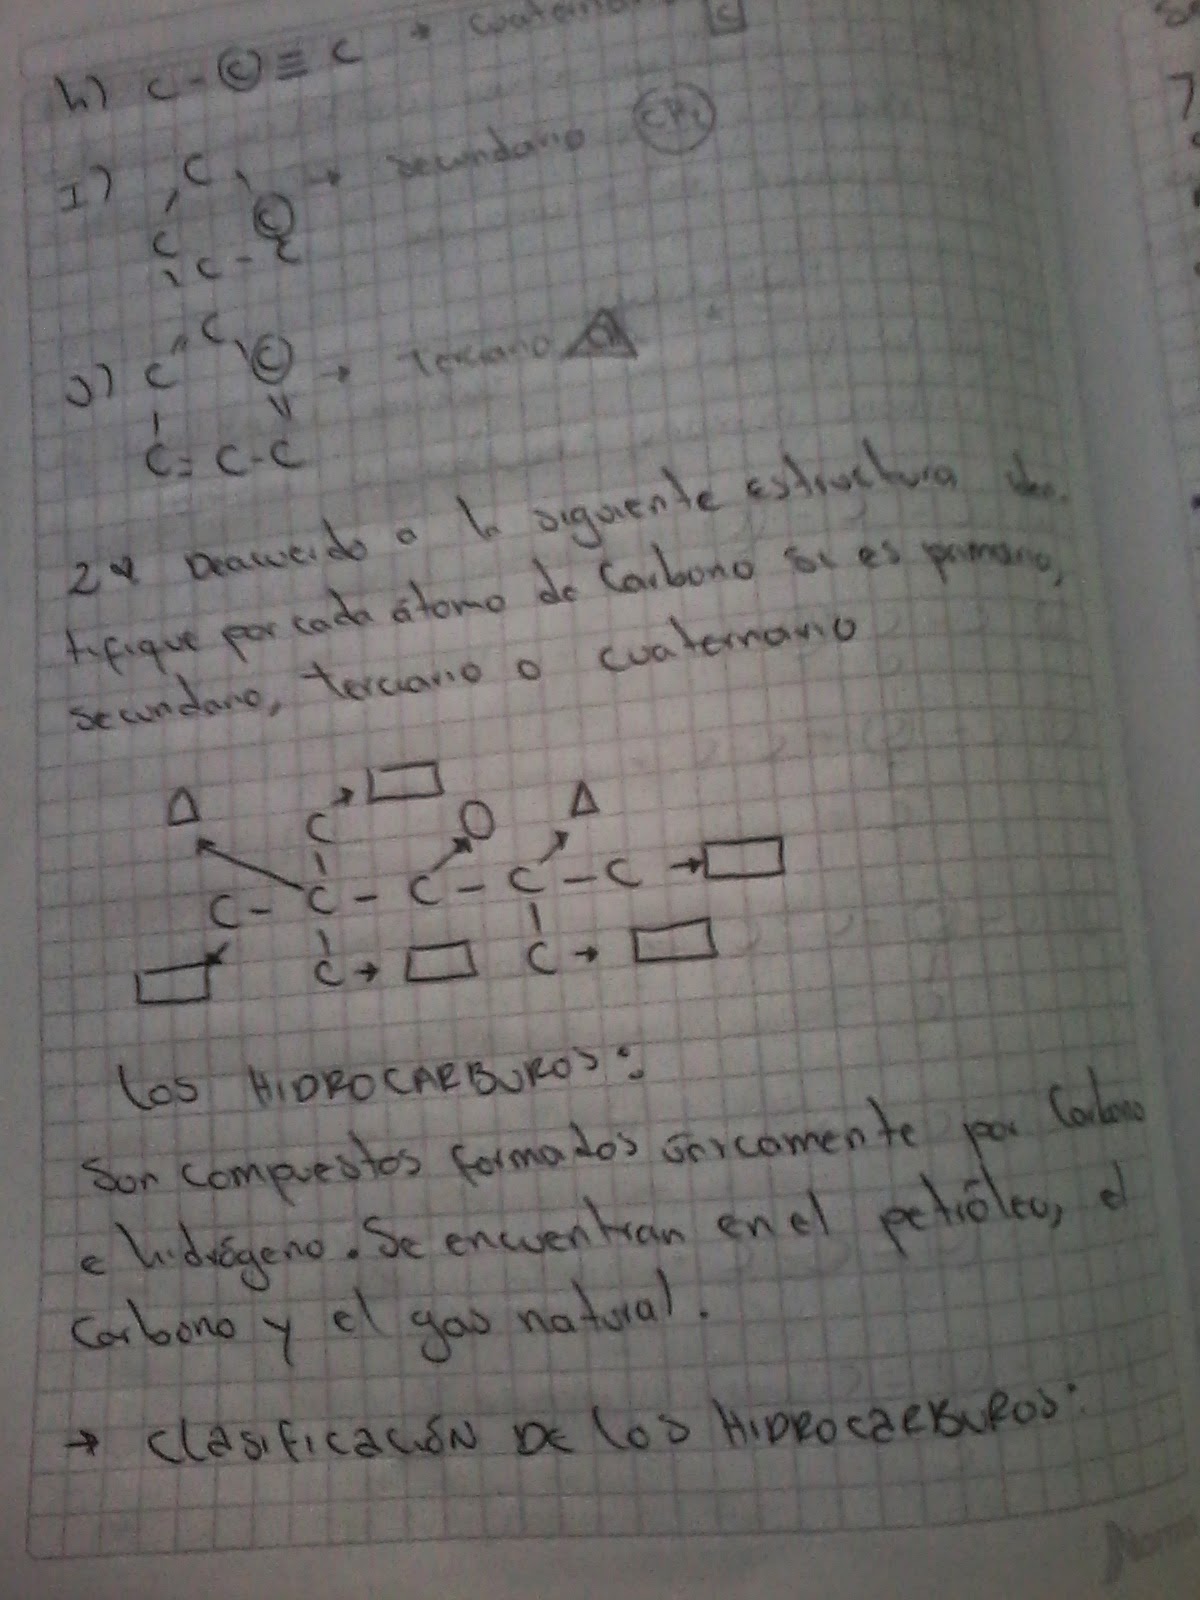 h) C - C ≡ C → cuaternario C
I) C → secundario CH₂
C C
C - C
J) C = C C → terciario CH
C = C - C
2 Deacuerdo a la siguiente estructura iden-
tifique por cada átomo de Carbono si es primario,
secundario, terciario o cuaternario
C →
C - C - C - C - C →
C → C →
Los HIDROCARBUROS:
Son compuestos formados únicamente por Carbono
e hidrógeno. Se encuentran en el petróleo, el
Carbono y el gas natural.
→ Clasificación DE los HIDROCARBUROS: